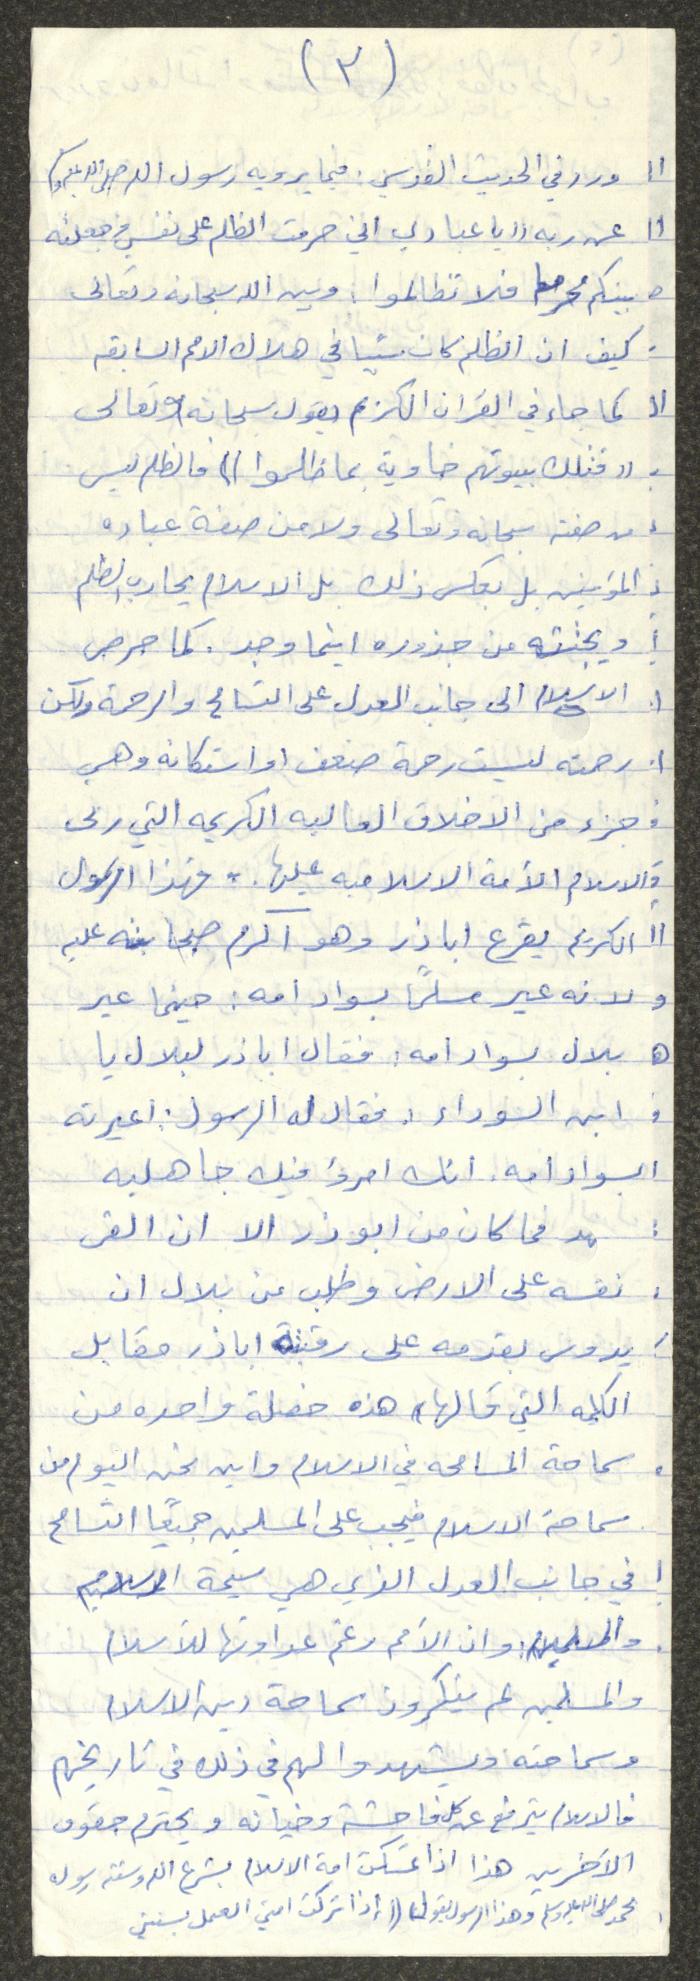 (٣)
ورد في الحديث القدسي: فيما يرويه رسول الله صلى الله عليه وسلم
عن ربه (( يا عبادي اني حرمت الظلم على نفسي وجعلته
بينكم محرما فلا تظالموا: وبين الله سبحانه وتعالى
كيف ان الظلم كان سببا في هلاك الامم السابقه
كما جاء في القران الكريم يقول سبحانه وتعالى
(( فتلك بيوتهم خاوية بما ظلموا )) فالظلم ليس
من صفته سبحانه وتعالى ولا من صفة عباده
المؤمنين بل بعكس ذلك بل الاسلام يحارب الظلم
ويجتثه من جذوره اينما وجد. كما حرص
الاسلام الى جانب العدل على التسامح والرحمة ولكن
رحمته ليست رحمة ضعف او استكانه وهي
جزء من الاخلاق العاليه الكريمه التي ربى
الاسلام الأمة الاسلاميه عليها. فهذا الرسول
الكريم يقرع اباذر وهو اكرم صحابته عليه
لانه عير مسلمًا بسواد امه: حينما عير
بلال بسواد امه: فقال اباذر لبلال يا
ابن السوداء: فقال له الرسول: اعيرته
بسواد امه. انك امرؤ فيك جاهليه
فما كان من ابوذر الا ان القى
نفسه على الارض وطلب من بلال ان
يدوس بقدمه على رقبة اباذر مقابل
الكلمه التي قالها، هذه خصلة واحده من
سماحة المسامحه في الاسلام واين نحن اليوم من
سماحة الاسلام فيجب على المسلمين جميعًا التسامح
في جانب العدل الذي هي سيمة الاسلام
والمسلمين: وان الأمم رغم عداوتها للأسلام
والمسلمين لم ينكرون سماحة دين الاسلام
وسماحته ويشهدوا لهم في ذلك في تاريخهم
فالاسلام يترفع عن كل فاحشة وخيانه ويحترم حقوق
الآخرين هذا اذا تمسكت امة الاسلام بشرع الله وسنة رسوله
محمد صلى الله عليه وسلم وهذا الرسول يقول (( إذا تركت امتي العمل بسنتي